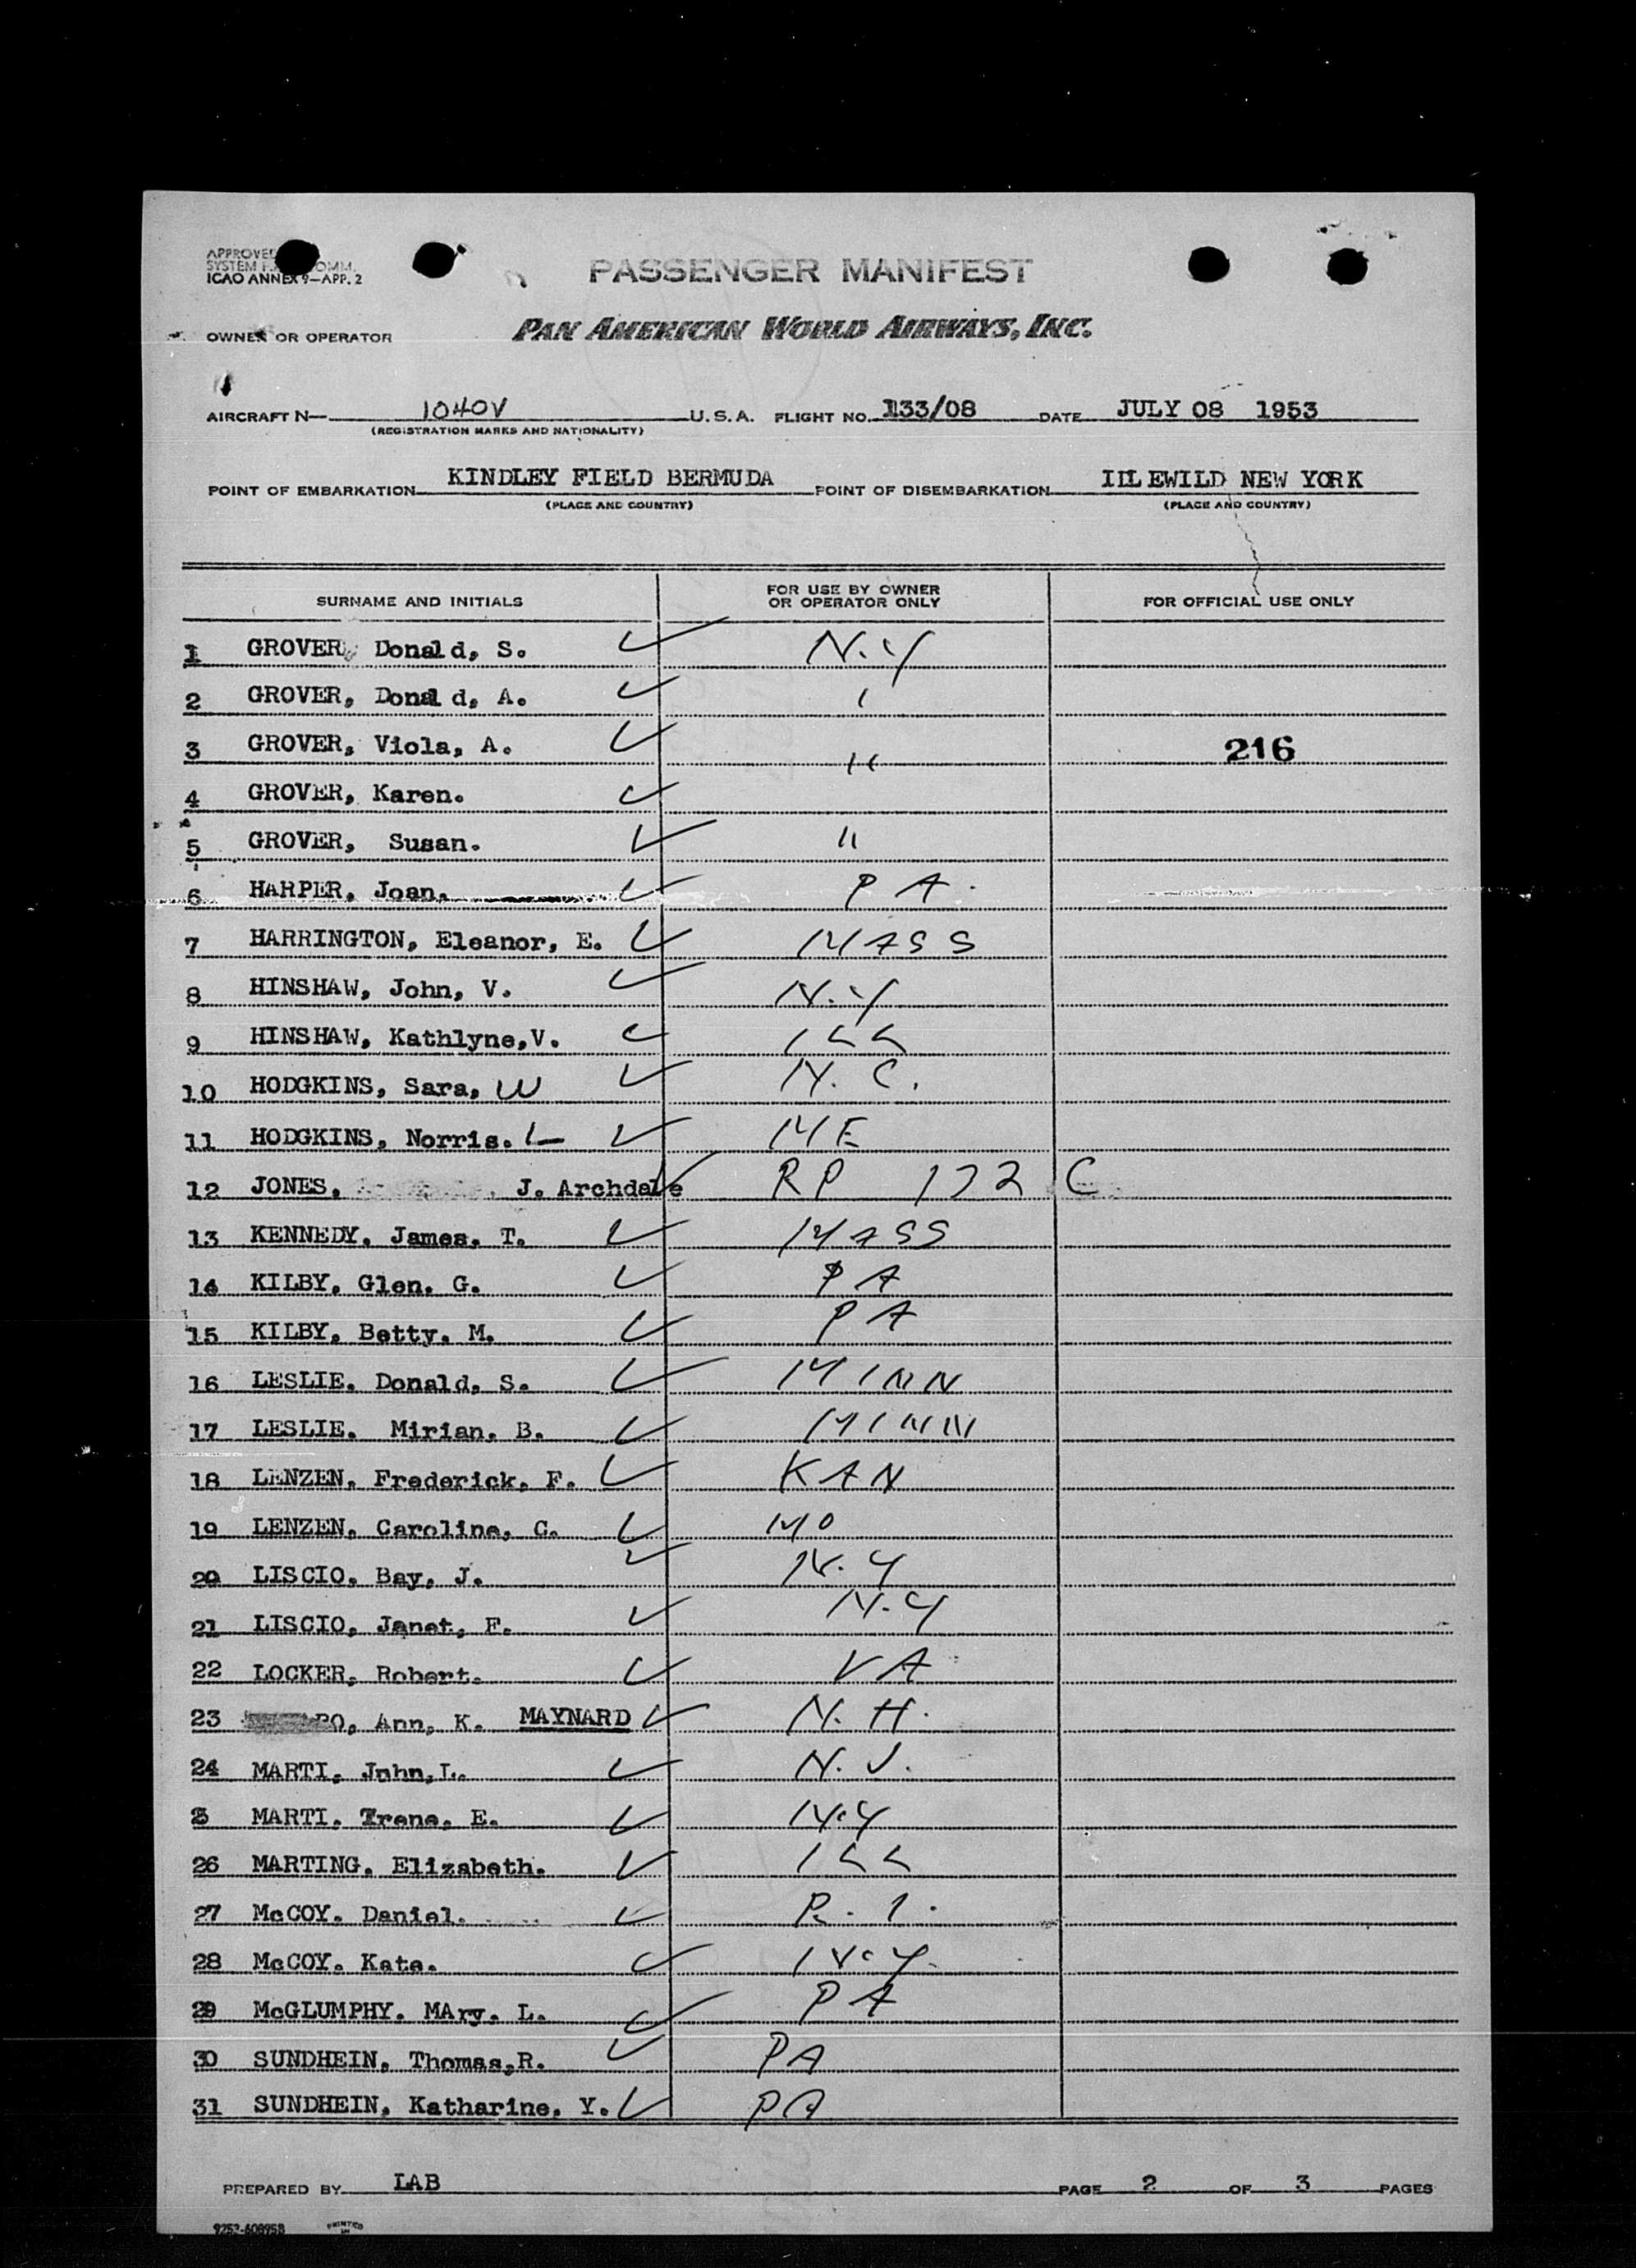 APPROVED
SYSTEM COMM.
ICAO ANNEX 9—APP. 2
PASSENGER MANIFEST
OWNER OR OPERATOR PAN AMERICAN WORLD AIRWAYS, INC.
AIRCRAFT N— 1040V U.S.A. FLIGHT NO. 133/08 DATE JULY 08 1953
(REGISTRATION MARKS AND NATIONALITY)
POINT OF EMBARKATION KINDLEY FIELD BERMUDA POINT OF DISEMBARKATION IDLEWILD NEW YORK
(PLACE AND COUNTRY) (PLACE AND COUNTRY)
SURNAME AND INITIALS FOR USE BY OWNER OR OPERATOR ONLY FOR OFFICIAL USE ONLY
1 GROVER, Donald, S. ✓ N.Y
2 GROVER, Donald, A. ✓ "
3 GROVER, Viola, A. ✓ " 216
4 GROVER, Karen. ✓
5 GROVER, Susan. ✓ "
6 HARPER, Joan. ✓ PA.
7 HARRINGTON, Eleanor, E. ✓ MASS
8 HINSHAW, John, V. ✓ N.Y
9 HINSHAW, Kathlyne,V. ✓ ILL
10 HODGKINS, Sara, W ✓ N.C.
11 HODGKINS, Norris. L ✓ ME
12 JONES, J. Archdale ✓ RP 132 C
13 KENNEDY, James, T. ✓ MASS
14 KILBY, Glen, G. ✓ PA
15 KILBY, Betty, M. ✓ PA
16 LESLIE, Donald, S. ✓ MINN
17 LESLIE, Mirian, B. ✓ MINN
18 LENZEN, Frederick, F. ✓ KAN
19 LENZEN, Caroline, C. ✓ MO
20 LISCIO, Bay, J. ✓ N.Y
21 LISCIO, Janet, F. ✓ N.Y
22 LOCKER, Robert. ✓ VA
23 Ann, K. MAYNARD ✓ N.H.
24 MARTI, John,L. ✓ N.J.
25 MARTI, Irene, E. ✓ N.Y
26 MARTING, Elizabeth. ✓ ILL
27 McCOY, Daniel. ✓ R.I.
28 McCOY, Kate. ✓ N.Y.
29 McGLUMPHY, MAry, L. ✓ PA
30 SUNDHEIN, Thomas,R. ✓ PA
31 SUNDHEIN, Katharine, Y. ✓ PA
PREPARED BY LAB PAGE 2 OF 3 PAGES
9252-60895B PRINTED IN